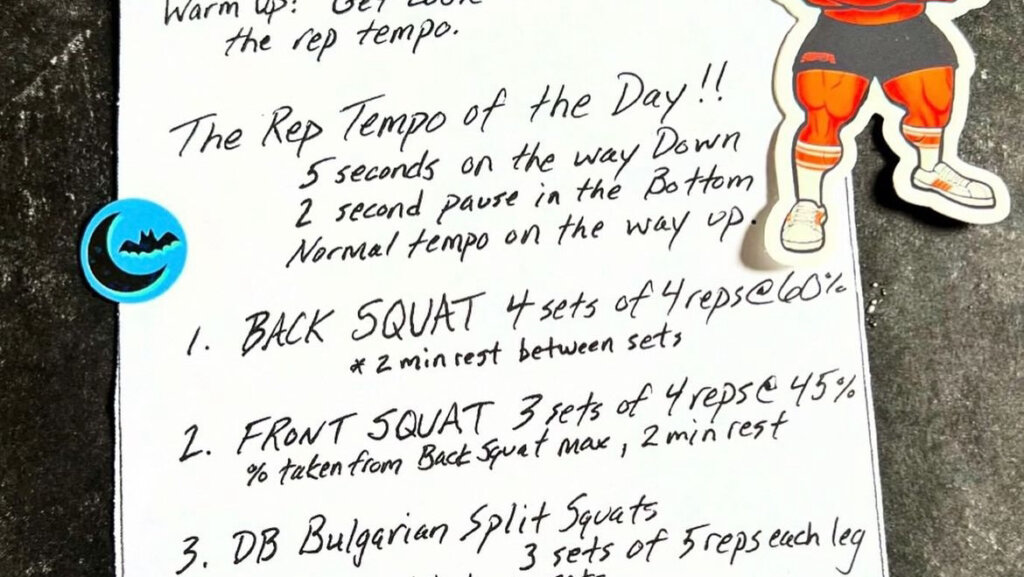 Warm up! Get
the rep tempo.
The Rep Tempo of the Day!!
5 seconds on the way Down
2 second pause in the Bottom
Normal tempo on the way up.
1. BACK SQUAT 4 sets of 4 reps @ 60%
* 2 min rest between sets
2. FRONT SQUAT 3 sets of 4 reps @ 45%
% taken from Back Squat max, 2 min rest
3. DB Bulgarian Split Squats
3 sets of 5 reps each leg